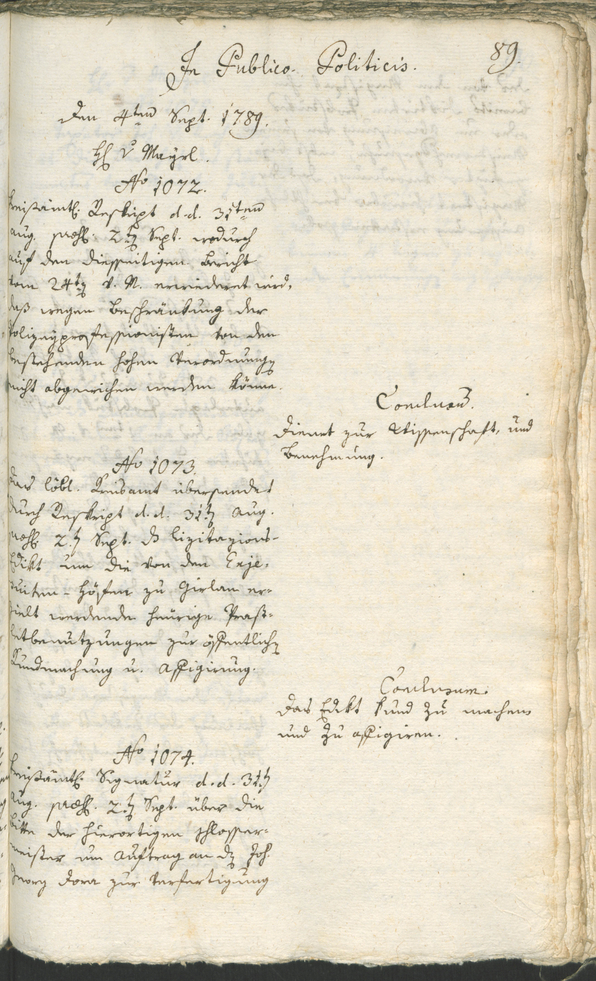 In Publico Politicis.
89.
Den 4ten Sept. 1789.
H v Mayrl.
No 1072.
Kreisämtl. Reskript d. d. 31ten
Aug. 2ten Sept. wodurch
auf den diesseitigen Bericht
vom 24ten v. M. erwiederet wird,
daß wegen Beschränkung der
Polizeyprofessionisten von den
bestehenden hohen Verordnungen
nicht abgewichen werden könne.
Conclusum.
Dienet zur Wissenschaft, und
Benehmung.
No 1073.
Das löbl. Kreisamt übersendet
durch Reskript d. d. 31ten Aug.
2ten Sept. das Lizitazions-
Edikt um die von den Exje-
suiten-Höfen zu Girlan er-
zielt werdende heurige
zur öffentlichen
Kundmachung u. affigirung.
Conclusum.
Das Edikt kund zu machen
und zu affigiren.
No 1074.
Kreisämtl. Signatur d. d. 31ten
Aug. 2ten Sept. über die
Bitte der hierortigen Schlosser-
meister um Auftrag an den Joh.
Georg Dora zur Verfertigung